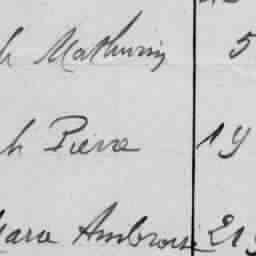 h Mathurin 5
h Pierre 19
Ambroise 219